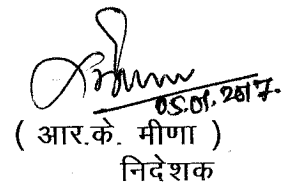 05.01.2017.
( आर.के. मीणा )
निदेशक